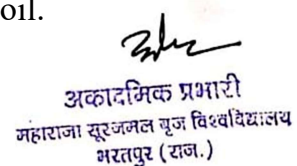 oil.
अकादमिक प्रभारी
महाराजा सूरजमल बृज विश्वविद्यालय
भरतपुर (राज.)